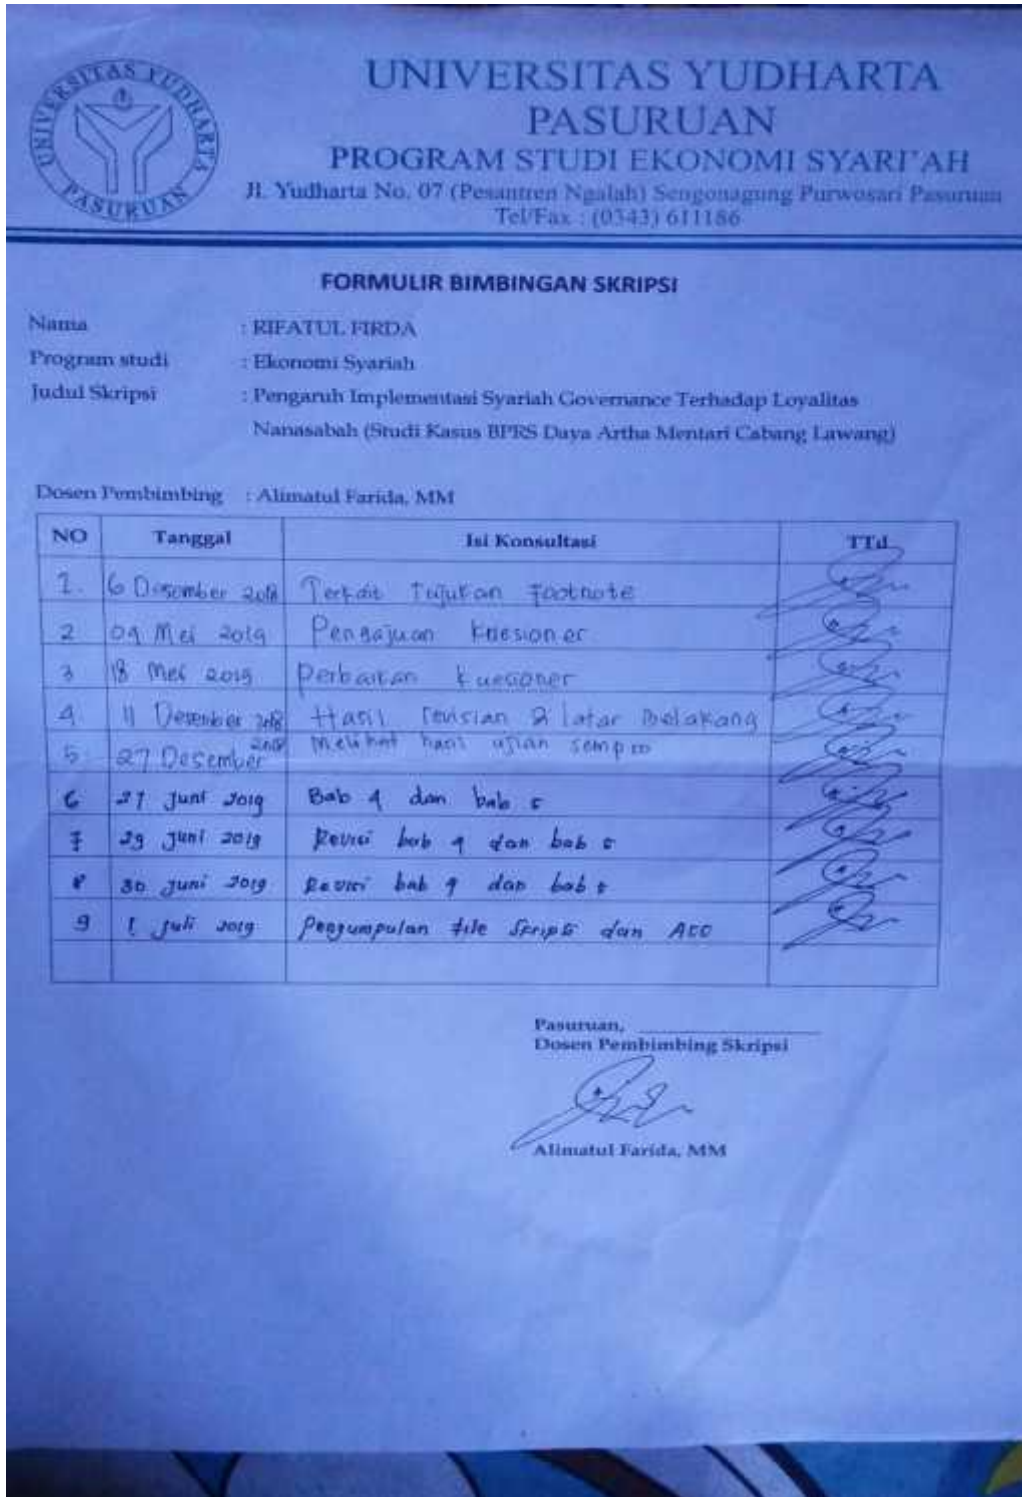 UNIVERSITAS YUDHARTA
PASURUAN
UNIVERSITAS YUDHARTA
PASURUAN
PROGRAM STUDI EKONOMI SYARI'AH
Jl. Yudharta No. 07 (Pesantren Ngalah) Sengonagung Purwosari Pasuruan
Tel/Fax : (0343) 611186
FORMULIR BIMBINGAN SKRIPSI
Nama : RIFATUL FIRDA
Program studi : Ekonomi Syariah
Judul Skripsi : Pengaruh Implementasi Syariah Governance Terhadap Loyalitas
Nanasabah (Studi Kasus BPRS Daya Artha Mentari Cabang Lawang)
Dosen Pembimbing : Alimatul Farida, MM
NO Tanggal Isi Konsultasi TTd
1. 6 Desember 2018 Terkait Footnote
2 09 Mei 2019 Pengajuan Kuesioner
3 18 Mei 2019 Perbaikan Kuesioner
4. 11 Desember 2018 Hasil revisian & latar belakang
5. 27 Desember 2018 Melihat hasil ujian sempro
6 27 Juni 2019 Bab 4 dan bab 5
7 29 Juni 2019 Revisi bab 4 dan bab 5
8 30 Juni 2019 Revisi bab 4 dan bab 5
9 1 Juli 2019 Pengumpulan file Skripsi dan ACC
Pasuruan,
Dosen Pembimbing Skripsi
Alimatul Farida, MM